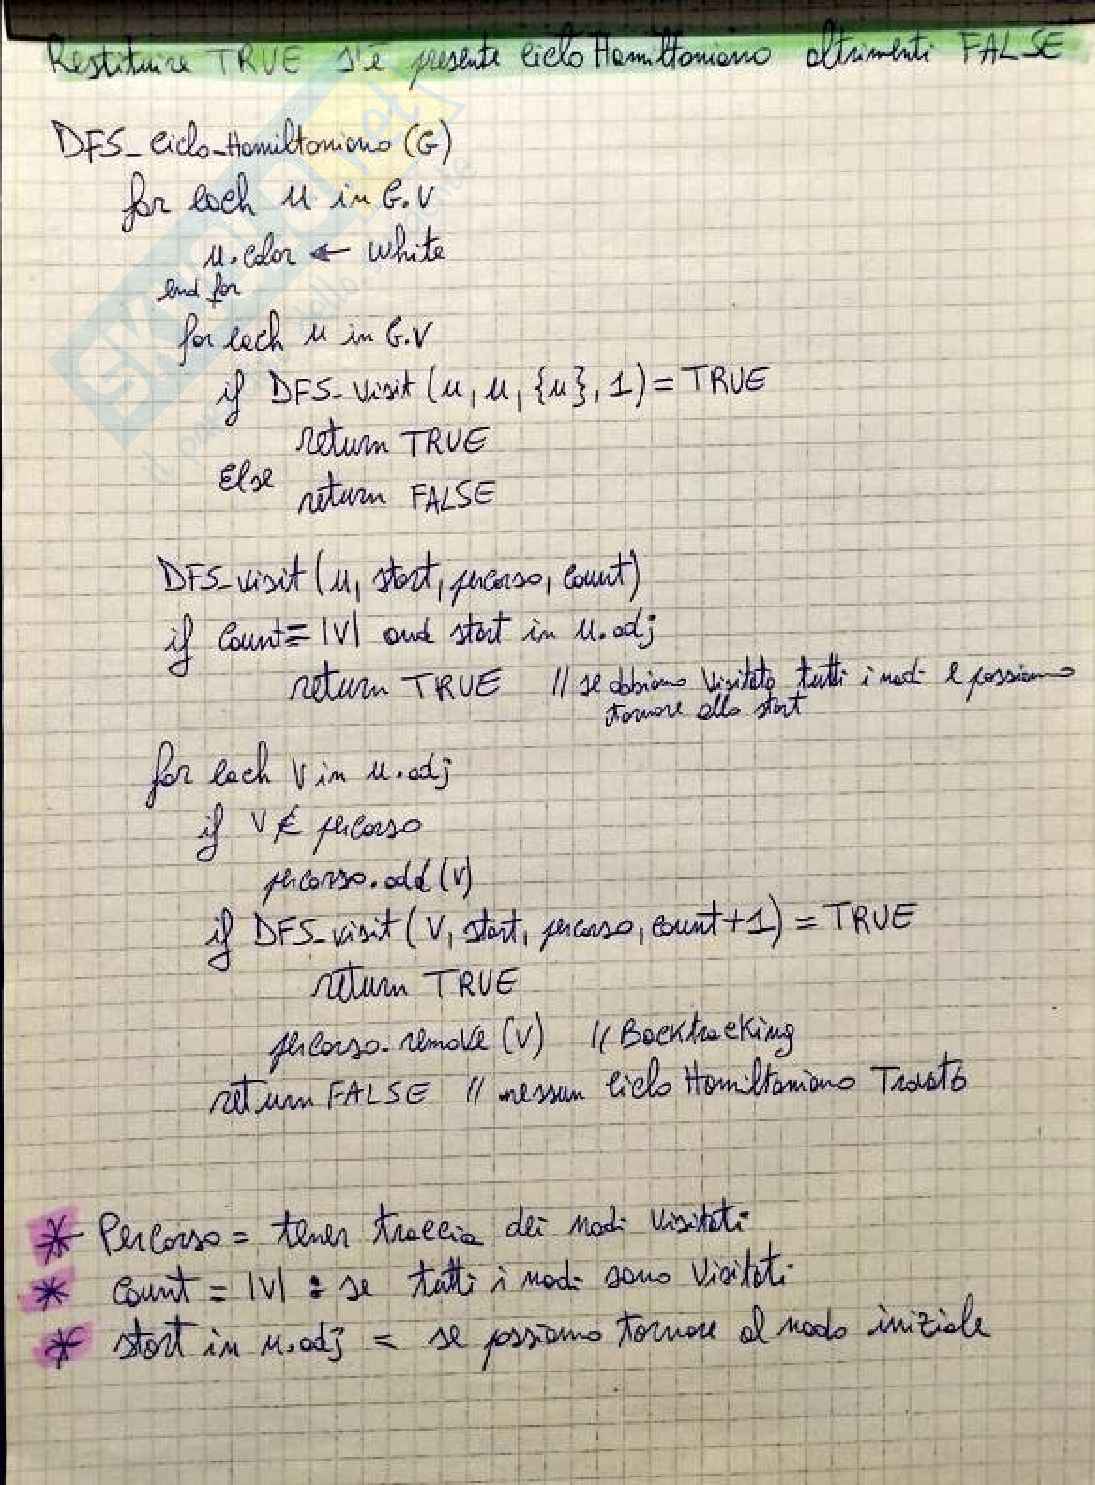 Restituire TRUE s'è presente ciclo Hamiltoniano altrimenti FALSE
DFS_Ciclo_Hamiltoniano (G)
for each u in G.V
u.color ← white
end for
for each u in G.V
if DFS_visit (u, u, {u}, 1) = TRUE
return TRUE
Else
return FALSE
DFS_visit (u, start, percorso, count)
if count = |V| and start in u.adj
return TRUE // se abbiamo visitato tutti i nodi e possiamo
tornare allo start
for each V in u.adj
if V ∉ percorso
percorso.add (V)
if DFS_visit (V, start, percorso, count+1) = TRUE
return TRUE
percorso.remove (V) // Backtracking
return FALSE // nessun ciclo Hamiltoniano Trovato
* Percorso = tener traccia dei nodi visitati
* Count = |V| : se tutti i nodi sono visitati
* start in u.adj = se possiamo tornare al nodo iniziale